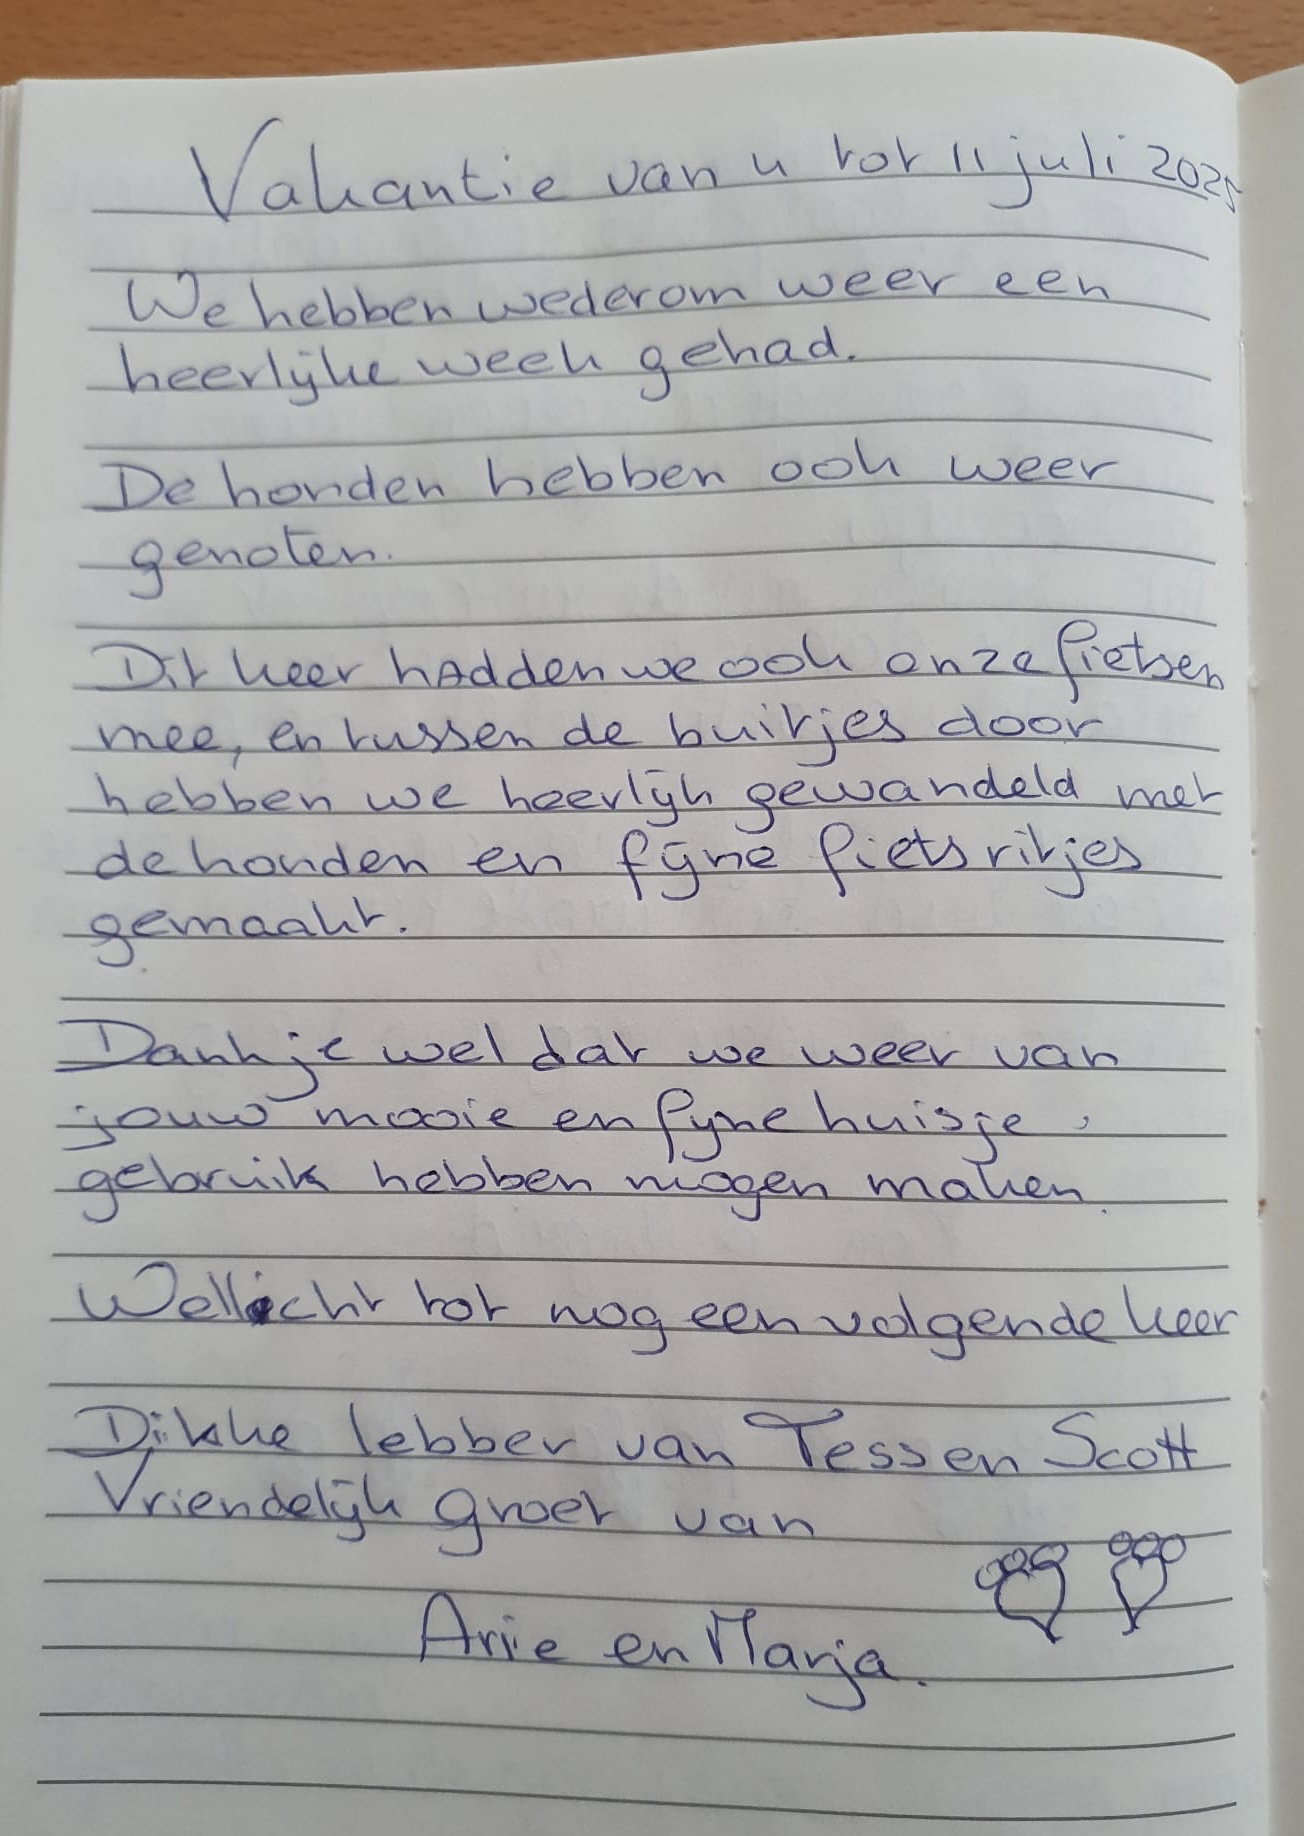 Vakantie van 4 tot 11 juli 2025
We hebben wederom weer een
heerlijke week gehad.
De honden hebben ook weer
genoten.
Dit keer hadden we ook onze fietsen
mee, en tussen de buitjes door
hebben we heerlijk gewandeld met
de honden en fijne fietsritjes
gemaakt.
Dank je wel dat we weer van
jouw mooie en fijne huisje
gebruik hebben mogen maken.
Wellicht tot nog een volgende keer
Dikke lebber van Tess en Scott
Vriendelijk groet van
Arie en Marja.